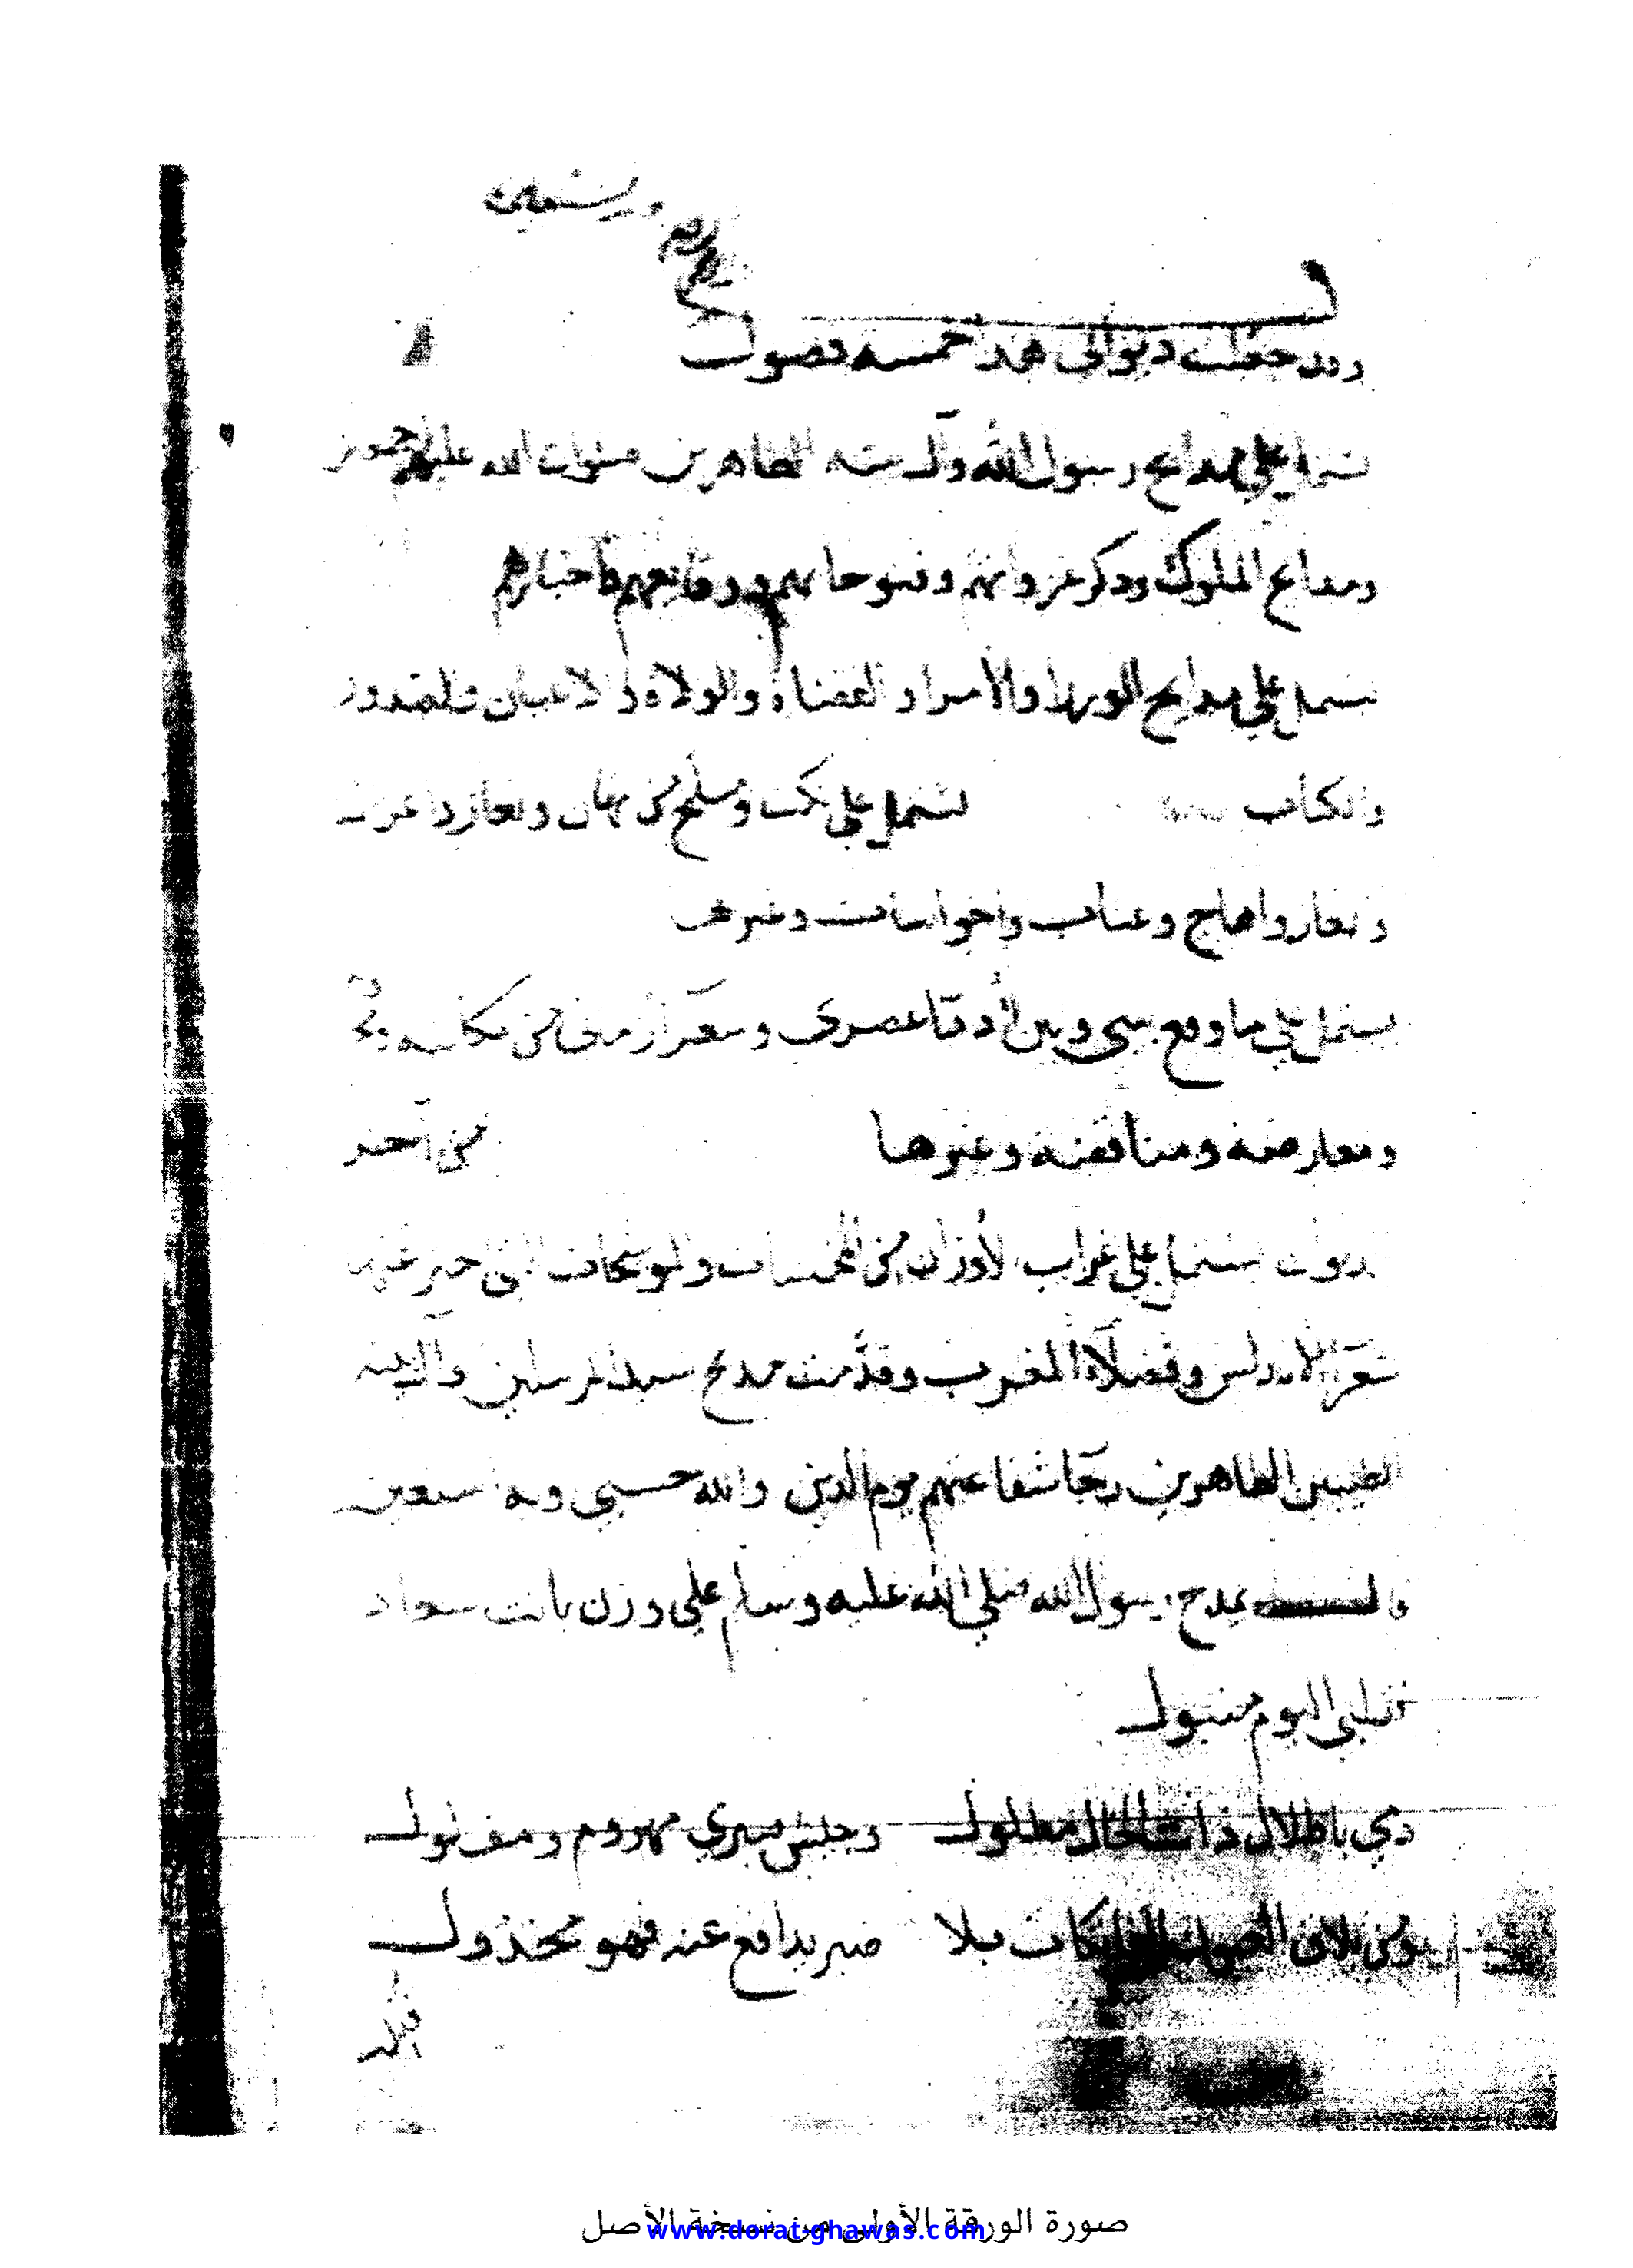 وبه نستعين
بسم الله الرحمن الرحيم
وقد جعلت ديواني هذا خمسة فصول
تشتمل على مدايح رسول الله وآل بيته الطاهرين صلوات الله عليهم اجمعين
ومدايح الملوك وذكر غزواتهم وفتوحاتهم ووقايعهم واخبارهم
يشتمل على مدايح الوزرا والأمرا والقضاة والولاة والاعيان والصدور
والكتاب يشتمل على نكت وملح من
وأهاج وعتاب واخوانيات وغيرها
يشتمل على ما وقع بيني وبين أدبا عصري وشعرآ زمني من مكاتبة
ومعارضة ومناقضة وغيرها في آخر
ديوان يشتمل على غرايب الأوزان من المخمسات والموشحات التي
شعرآ الأندلس وفضلاء المغرب وقدمت مديح سيد المرسلين وآل بيته
الطيبين الطاهرين رجا شفاعتهم يوم الدين والله حسبي وبه استعين
وقلت بمدح رسول الله صلى الله عليه وسلم على وزن بانت سعاد
فقلبي اليوم متبول
دمي باطلال ذات الخال مطلول وجيش صبري مهزوم ومفلول
ومن يلاق العيون الفاتكات بلا صبر يدافع عنه فهو مخذول
صورة الورقة الأولى من نسخة الأصل
www.dorat-ghawas.com